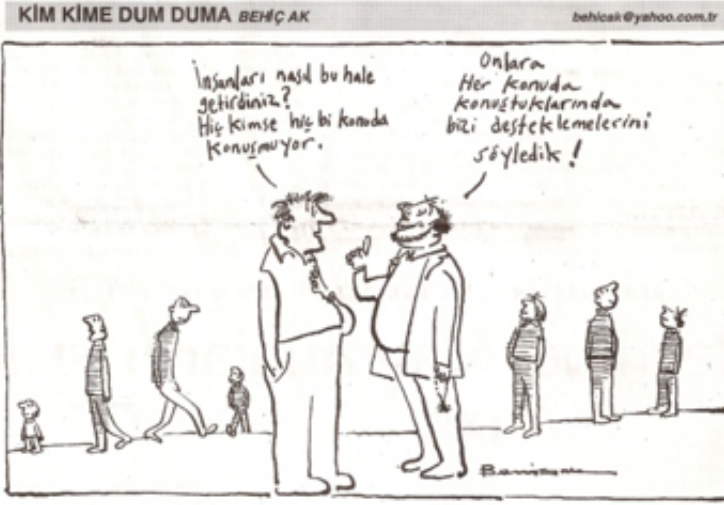 KİM KİME DUM DUMA BEHİÇ AK
behicak@yahoo.com.tr
İnsanları nasıl bu hale
getirdiniz?
Hiç kimse hiç bi konuda
konuşmuyor.
Onlara
Her konuda
konuştuklarında
bizi desteklemelerini
söyledik!